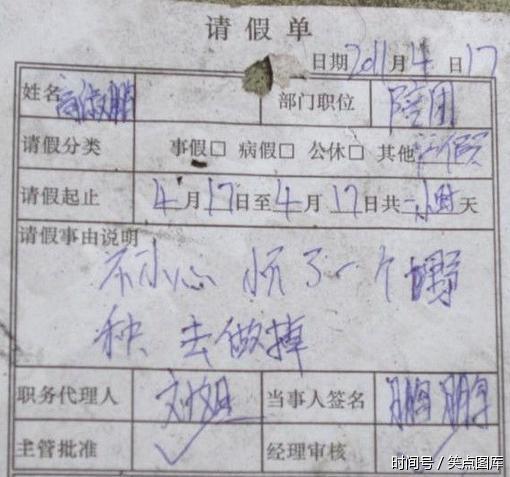 请假单
日期2011月4日17
姓名 部门职位 陪团
请假分类 事假□ 病假□ 公休□ 其他
请假起止 4月17日至4月17日共一小时天
请假事由说明
不小心 怀了一个野
种 去做掉
职务代理人 刘姐 当事人签名 鹏鹏
主管批准 ✓ 经理审核 ✓
时间号/笑点图库